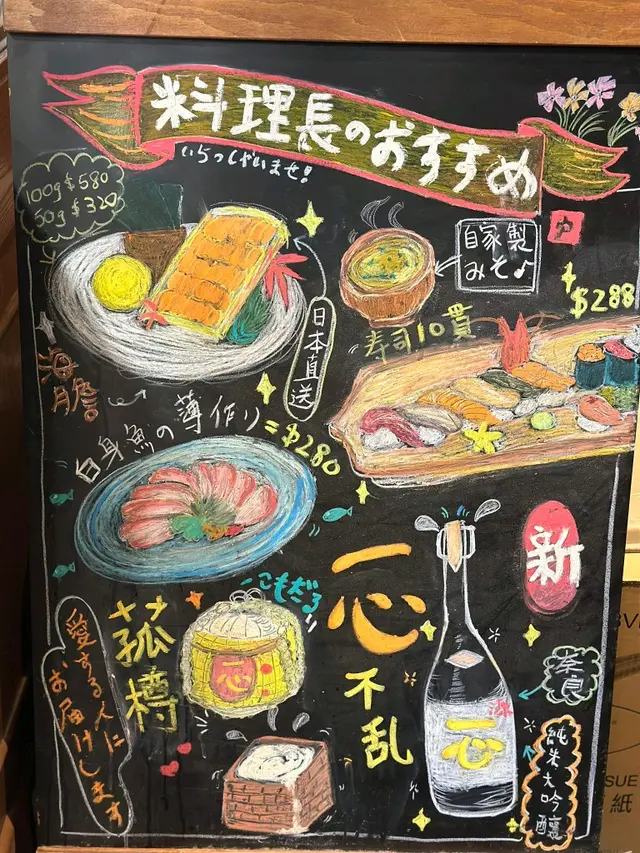 料理長のおすすめ
いらっしゃいませ!
100g $580
50g $320
自家製
みそ♪
$288
日本直送
寿司10貫
海膽
白身魚の薄作り=$280
新
こもだる
一心
不乱
菰樽
愛する人に
お届けします
一心
奈良
一心
純米大吟醸
SUE
紙